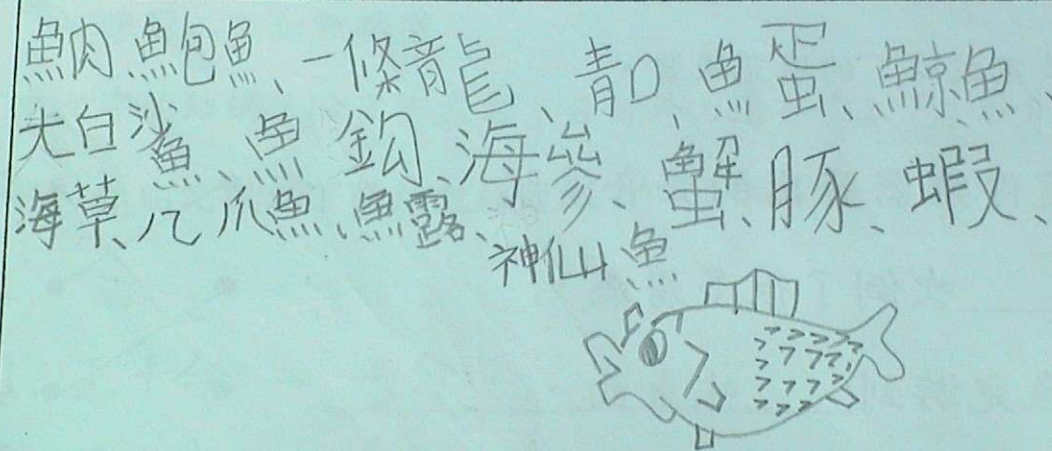 魚肉、鮑魚、一條龍、青口、魚蛋、鯨魚、
大白沙魚、魚鈎、海參、蟹、豚、蝦、
海草、八爪魚、魚露、神仙魚